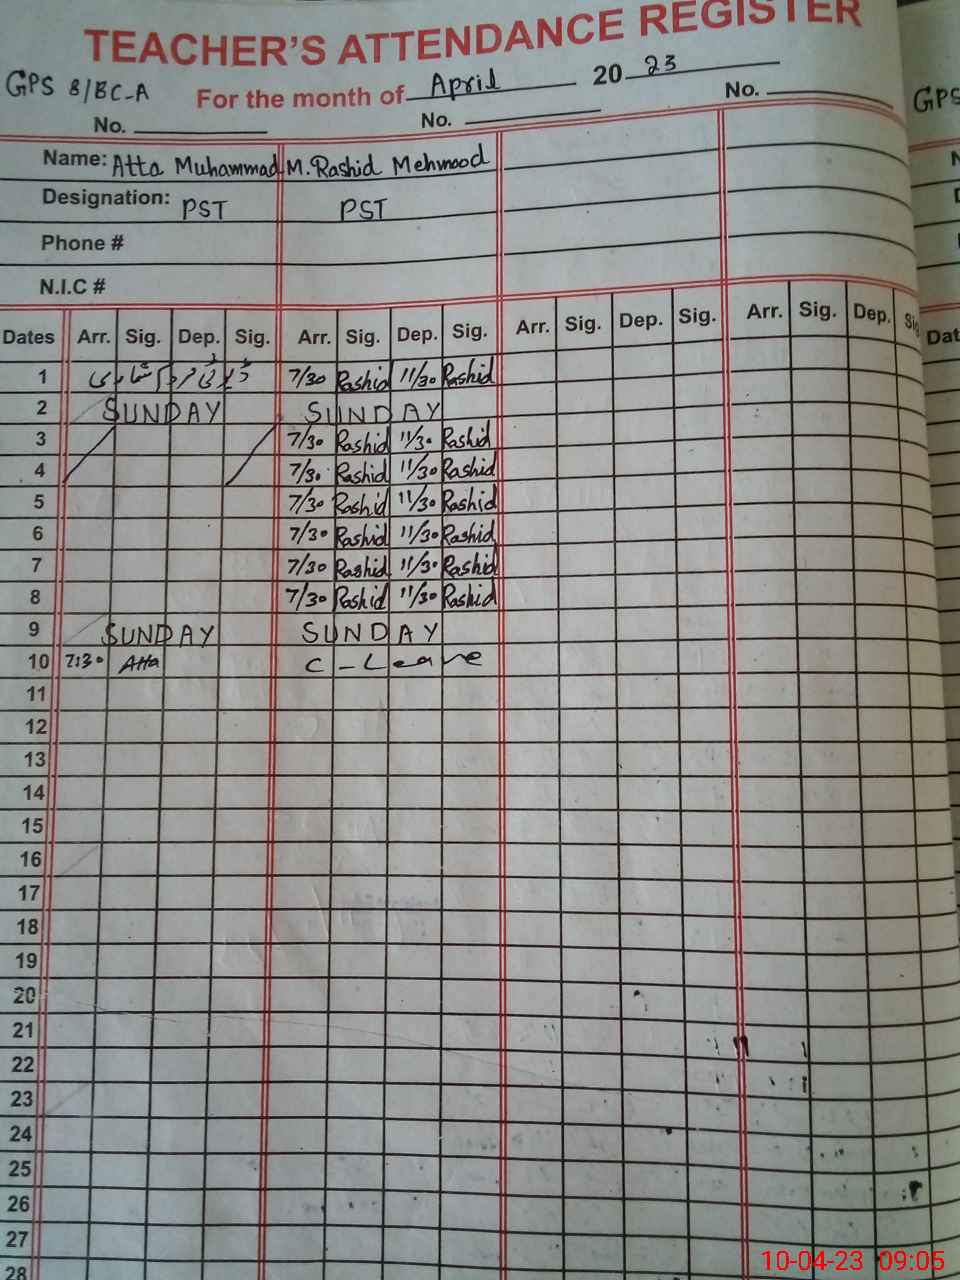 TEACHER'S ATTENDANCE REGISTER
GPS 8/BC-A For the month of April 2023
No. No. No.
GPS
Name: Atta Muhammad M. Rashid Mehmood
Designation: PST PST
Phone #
N.I.C #
Dates Arr. Sig. Dep. Sig. Arr. Sig. Dep. Sig. Arr. Sig. Dep. Sig. Arr. Sig. Dep. Sig
Dat
1 ڈیوٹی مردم شماری 7/30 Rashid 11/30 Rashid
2 SUNDAY SUNDAY
3 7/30 Rashid 11/30 Rashid
4 7/30 Rashid 11/30 Rashid
5 7/30 Rashid 11/30 Rashid
6 7/30 Rashid 11/30 Rashid
7 7/30 Rashid 11/30 Rashid
8 7/30 Rashid 11/30 Rashid
9 SUNDAY SUNDAY
10 7:30 Atta C-Leave
11
12
13
14
15
16
17
18
19
20
21
22
23
24
25
26
27
28
10-04-23 09:05